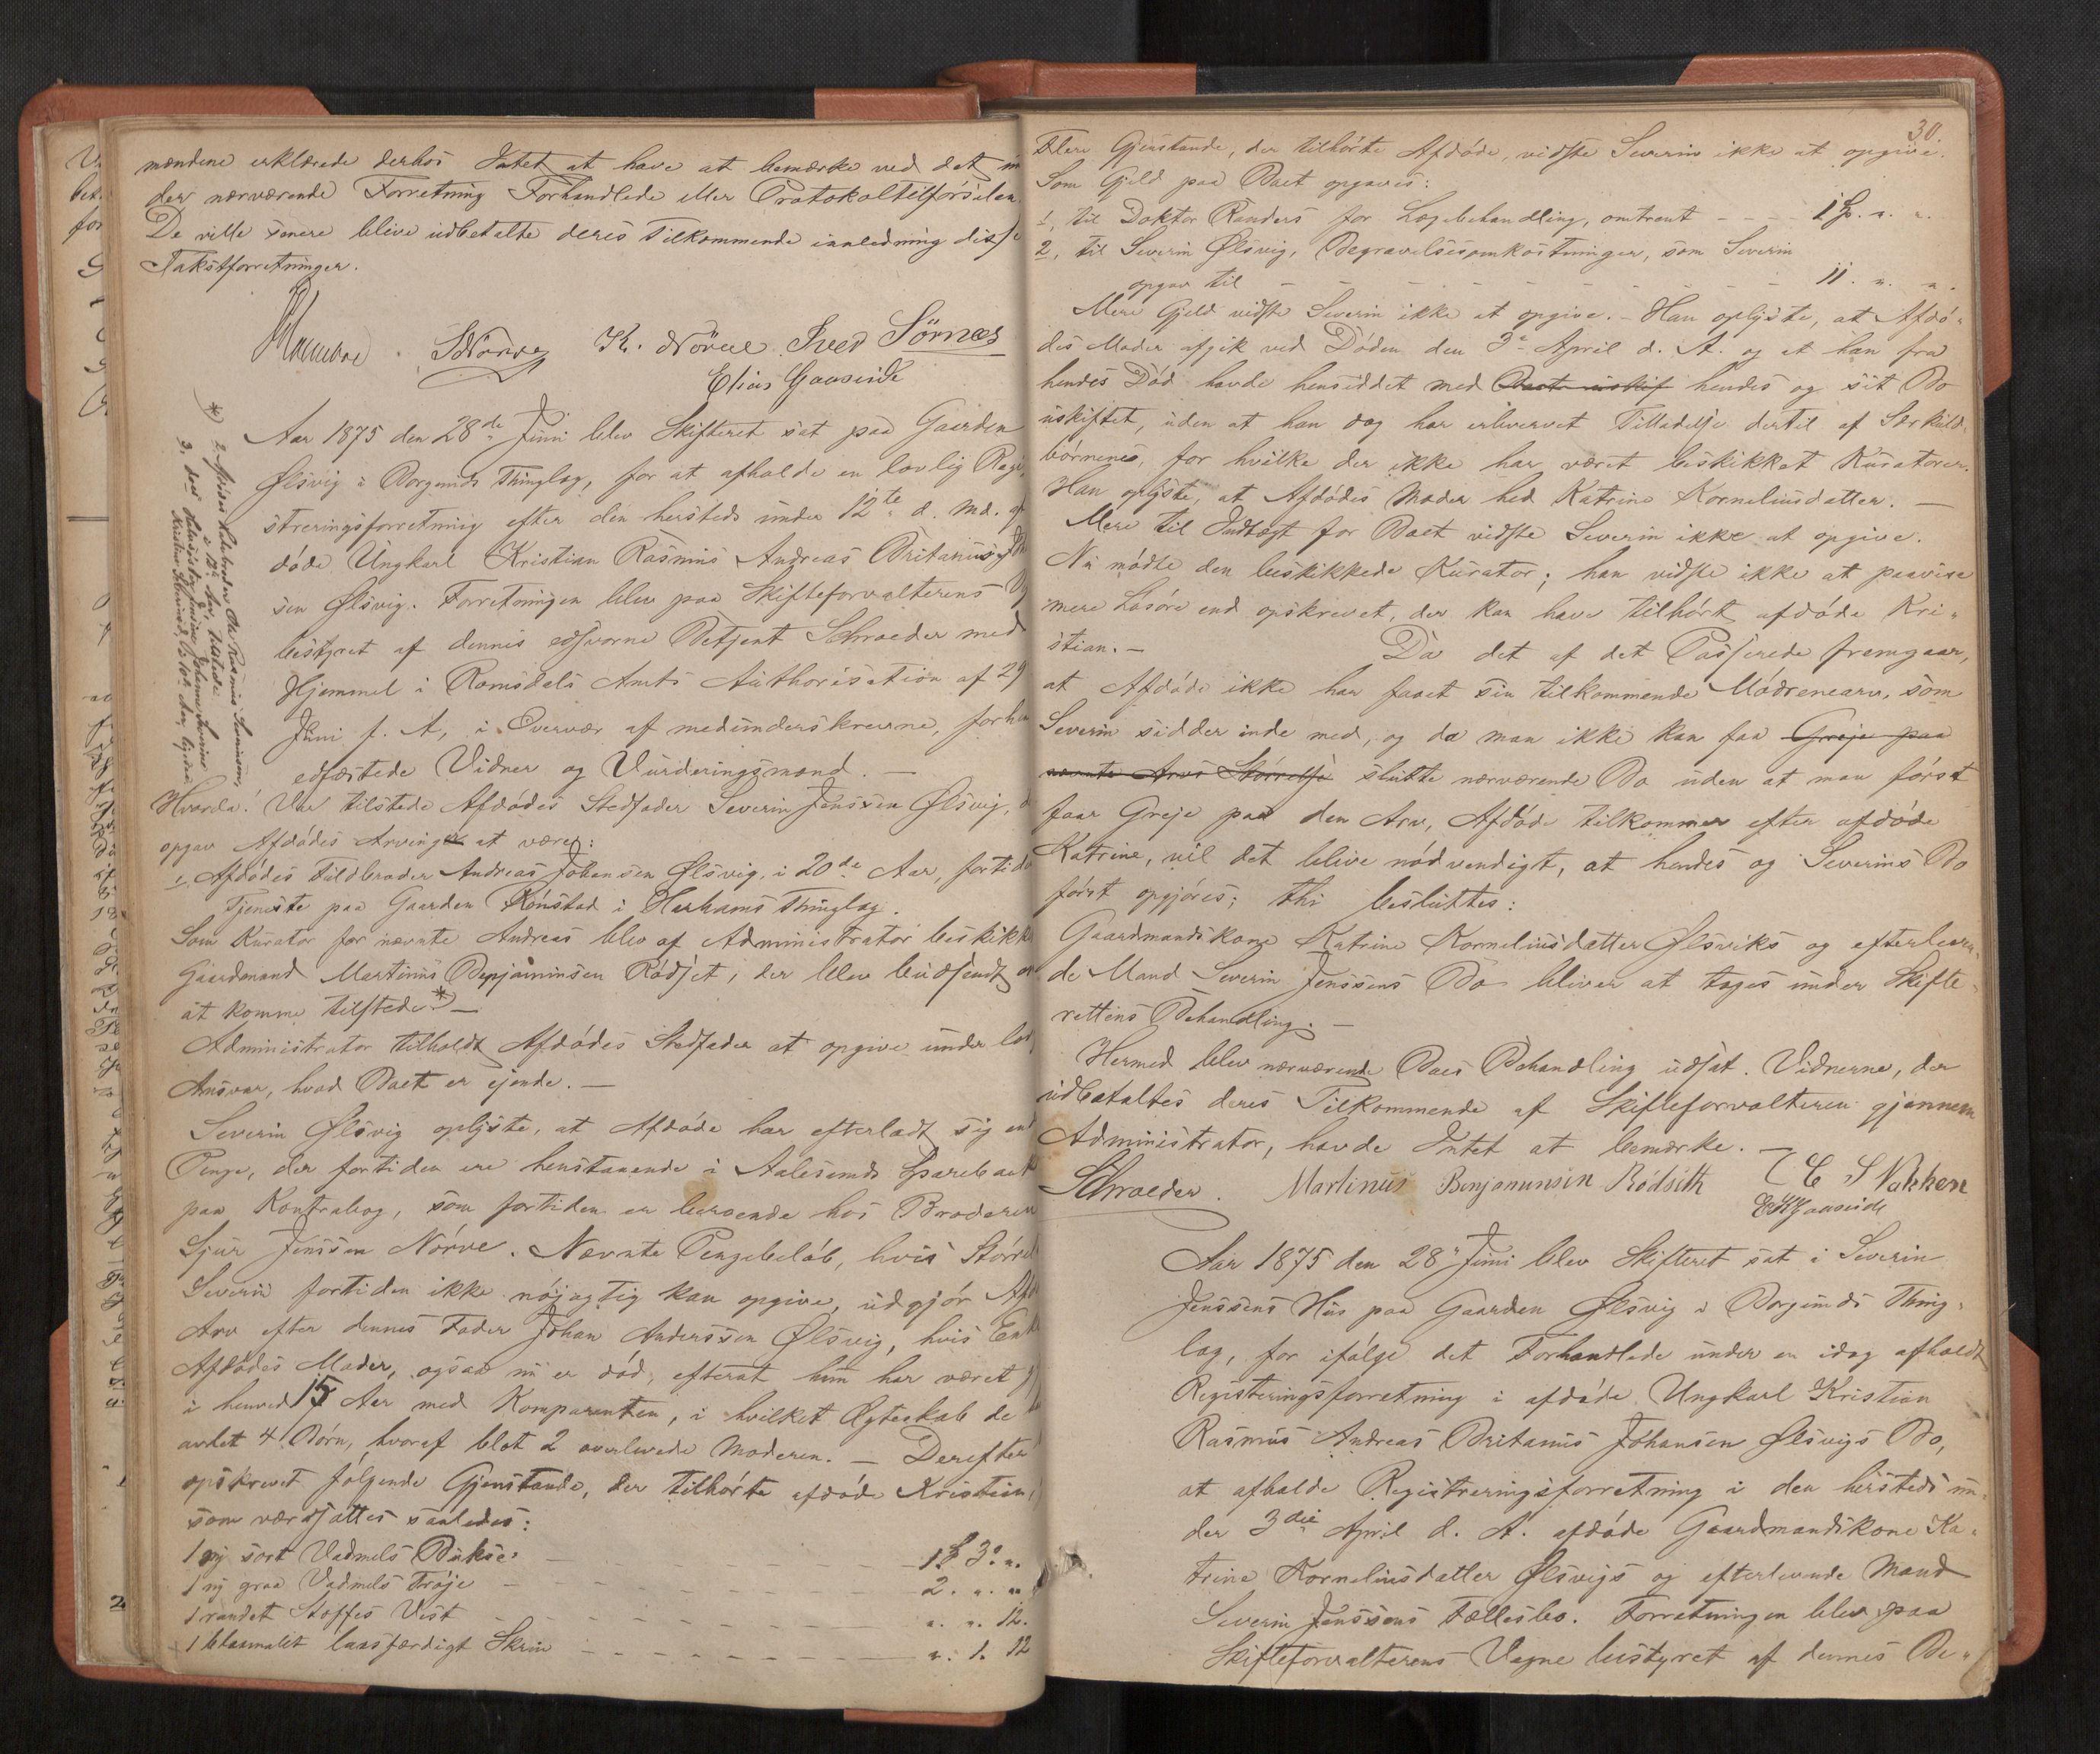 mændene erklærede derhos Intet at have at bemærke ved det
der nærværende Forretning Forhandlede eller Protokoltilførselen.
De ville senere blive udbetalte deres Tilkommende i anledning disse
Takstforretninger.
K. Nörve Iver Sörnes
Elias Gaaseide
Aar 1875 den 28de Juni blev Skifteret sat paa Gaarden
Ølsvig i Borgunds Thinglag, for at afholde en lovlig Regi
streringsforretning efter den hersteds under 12te d. Md. af
döde Ungkarl Kristian Rasmus Andreas Britanius Johan
sen Ølsvig. Forretningen blev paa Skifteforvalterens
bestyret af dennes edsvorne Betjent Schroeder med
Hjemmel i Romsdals Amts Authorisation af 29
Juni f. A, i Overvær af medunderskrevne, forhen
edfæstede Vidner og Vurderingsmænd. —
Hvorda! Var tilstede Afdödes Stedfader Severin Jenssen Ølsvig,
opgav Afdödes Arvinger at være:
1, Afdödes Fuldbroder Andreas Johansen Ølsvig, i 20de Aar, fortiden
Tjeneste paa Gaarden Rönstad i Harhams Thinglag.
Som Kurator for nævnte Andreas blev af Administrator beskikket
Gaardmand Martinus Benjaminsen Rödset, der blev budsendt
at komme tilstede. *) —
*) 2. Afdödes Halvbroder Ole Rasmus Severinsen,
i 12te Aar, tilstede.
3, do Halvsöster Josefine Johanne Severine
Administrator tilholdt Afdödes Stedfader at opgive under
Ansvar, hvad Boet er ejende. —
Severin Ølsvig oplyste, at Afdöde har efterladt sig en
Penge, der fortiden ere henstaaende i Aalesunds Sparebank
paa Kontrabog, som fortiden er beroende hos Broderen
Sjur Jenssen Nörve. Nævnte Pengebelöb, hvis Större
Severin fortiden ikke nöjagtig kan opgive, udgjör Afd
Arv efter dennes Fader Johan Anderssen Ølsvig, hvis Enke
Afdödes Moder, ogsaa nu er död, efterat hun har været
i henved 15 Aar med Komparenten, i hvilket Ægteskab de
avlet 4 Börn, hvoraf blot 2 overlevede Moderen. — Derefter
opskrevet fölgende Gjenstande, der tilhörte afdöde Kristian,
som værdsattes saaledes:
1 ny sort Vadmels Bukse — 1 3. "
1 ny graa Vadmels Tröje — 2. " "
1 randet Stoffes Vest — " " 12.
1 blaamalet laasfærdigt Skrin — " 1. 12
30.
Flere Gjenstande, der tilhörte Afdöde, vidste Severin ikke at opgive.
Som Gjeld paa Boet opgaves:
1, til Doktor Randers for Lægebehandling, omtrent — 1 " "
2, til Severin Ølsvig, Begravelsesomkostninger, som Severin
opgav til — 11. " ".
Mere Gjeld vidste Severin ikke at opgive. — Han oplyste, at Afdö-
des Moder afgik ved Döden den 3e April d. A. og at han fra
hendes Död havde hensiddet med hendes og sit Bo
uskiftet, uden at han dog har erhvervet Tilladelse dertil af Særkuld-
börnenes, for hvilke der ikke har været beskikket Kuratorer.
Han oplyste, at Afdödes Moder hed Katrine Korneliusdatter. —
Mere til Indtægt for Boet vidste Severin ikke at opgive.
Nu mödte den beskikkede Kurator; han vidste ikke at paavise
mere Lösöre end opskrevet, der kan have tilhört afdöde Kri-
stian. — Da det af det Passerede fremgaar,
at Afdöde ikke har faaet sin tilkommende Mödrenearv, som
Severin sidder inde med, og da man ikke kan faa Greje paa
nævnte Arvs Störrelse slutte nærværende Bo uden at man först
faar Greje paa den Arv, Afdöde tilkommer efter afdöde
Katrine, vil det blive nödvendigt, at hendes og Severins Bo
först opgjöres; thi besluttes:
Gaardmandskone Katrine Korneliusdatter Ølsviks og efterleven-
de Mand Severin Jenssens Bo bliver at tages under Skifte-
rettens Behandling. —
Hermed blev nærværende Boes Behandling udsat. Vidnerne, der
udbetaltes deres Tilkommende af Skifteforvalteren gjennem
Administrator, havde Intet at bemærke. —
Schroeder. Martinus Benjaminsen Rödseth C S Nakken
E Gaaseide
Aar 1875 den 28 Juni blev Skifteret sat i Severin
Jenssens Hus paa Gaarden Ølsvig i Borgunds Thing-
lag, for ifölge det Forhandlede under en idag afholdt
Registeringsforretning i afdöde Ungkarl Kristian
Rasmus Andreas Britanius Johansen Ølsvigs Bo,
at afholde Registreringsforretning i den hersteds un-
der 3die April d. A. afdöde Gaardmandskone Ka-
trine Korneliusdatter Ølsvigs og efterlevende Mand
Severin Jenssens Fællesbo. Forretningen blev paa
Skifteforvalterens Vegne bestyret af dennes Be-